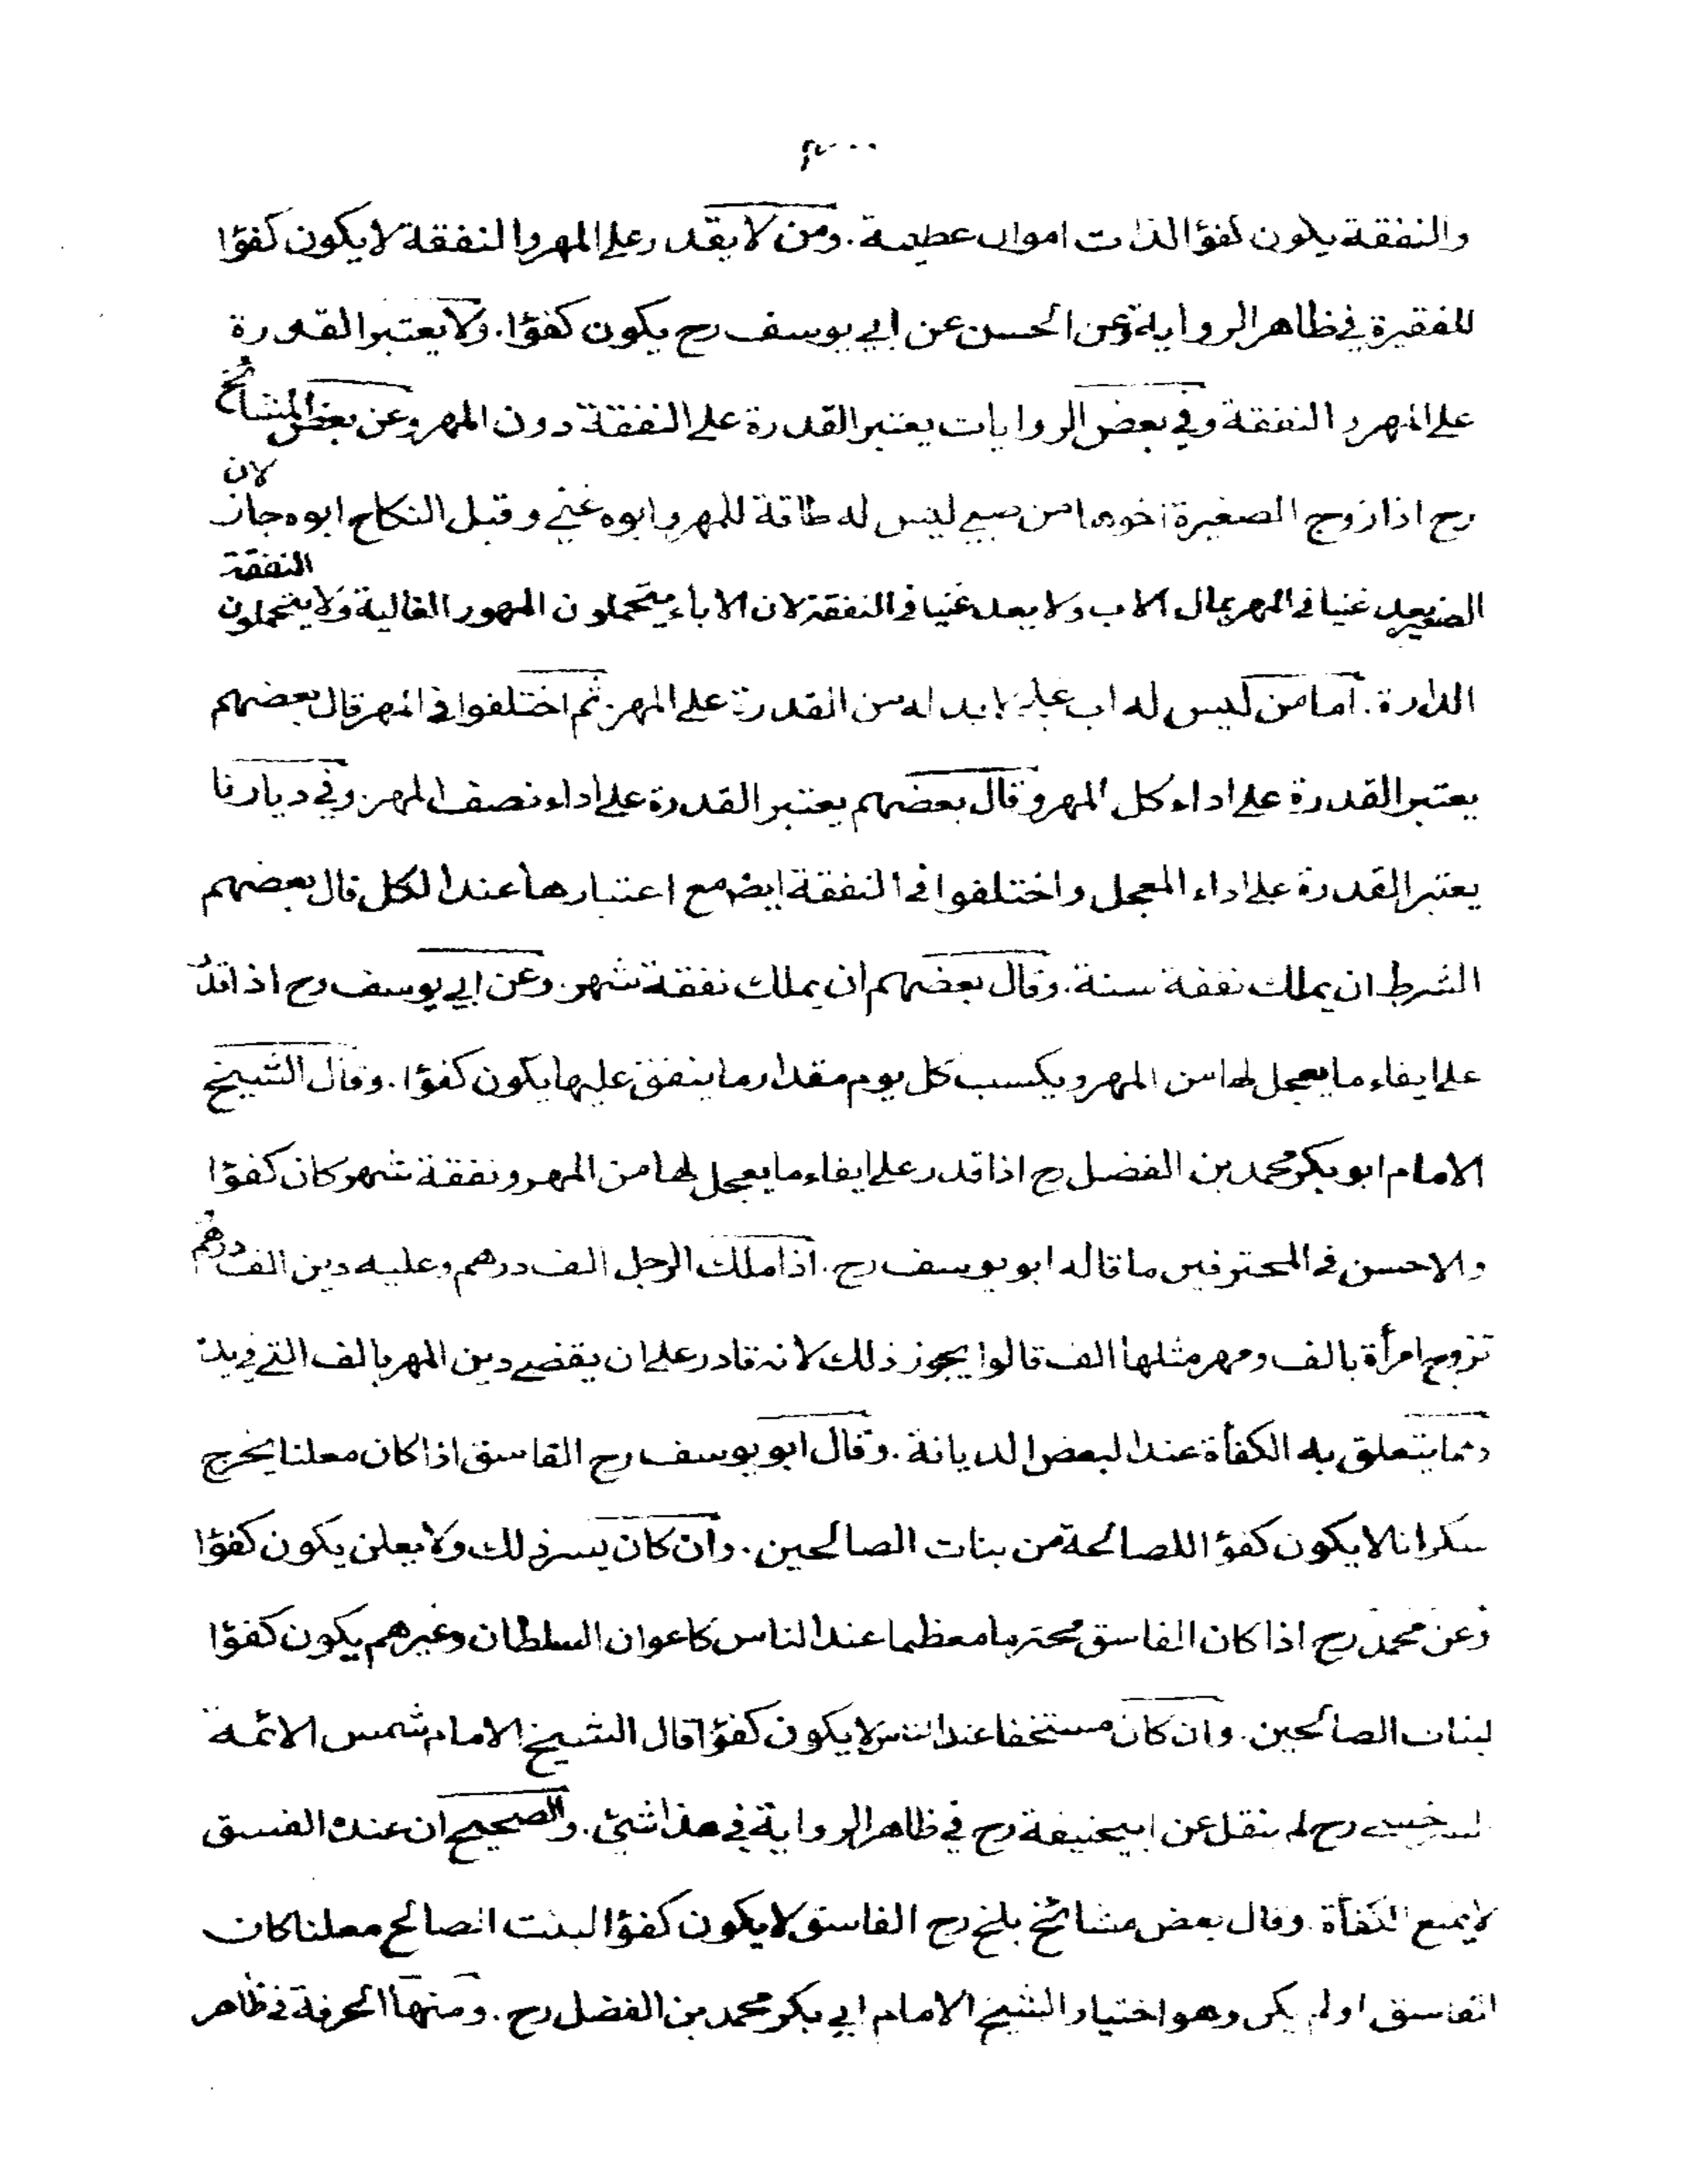 ٣٠٠
والنفقة يكون كفؤا لذات اموال عظيمة . ومن لا يقدر على المهر والنفقة لا يكون كفؤا
للفقيرة في ظاهر الرواية وعن الحسن عن ابي يوسف رح يكون كفؤا . ولا يعتبر القدرة
على المهر و النفقة وفي بعض الروايات يعتبر القدرة على النفقة دون المهر وعن بعض المشائخ
رح اذا زوج الصغيرة اخوها من صبي ليس له طاقة للمهر وابوه غني و قبل النكاح ابوه جاز لان
الصغير يعد غنيا في المهر بمال الاب ولا يعد غنيا في النفقة لان الاباء يتحملون المهور الغالية ولا يتحملون النفقة
الدارة . اما من ليس له اب عليه لابد له من القدرة على المهر . ثم اختلفوا في المهر قال بعضهم
يعتبر القدرة على اداء كل المهر وقال بعضهم يعتبر القدرة على اداء نصف المهر . وفي ديارنا
يعتبر القدرة على اداء المعجل واختلفوا في النفقة ايض مع اعتبارها عند الكل قال بعضهم
الشرط ان يملك نفقة سنة . وقال بعضهم ان يملك نفقة شهر . وعن ابي يوسف رح اذا قدر
على ايفاء ما يعجل لها من المهر ويكسب كل يوم مقدار ما ينفق عليها يكون كفؤا . وقال الشيخ
الامام ابو بكر محمد بن الفضل رح اذا قدر على ايفاء ما يعجل لها من المهر ونفقة شهر كان كفؤا
والاحسن في المحترفين ما قاله ابو يوسف رح . اذا ملك الرجل الف درهم وعليه دين الف درهم
تزوج امرأة بالف ومهر مثلها الف قالوا يجوز ذلك لانه قادر على ان يقضي دين المهر بالف التي في يده
ومما يتعلق به الكفأة عند البعض الديانة . وقال ابو يوسف رح الفاسق اذا كان معلنا يخرج
سكرانا لا يكون كفؤا للصالحة من بنات الصالحين . وان كان يسر ذلك ولا يعلن يكون كفؤا
وعن محمد رح اذا كان الفاسق محترما معظما عند الناس كاعوان السلطان وغيرهم يكون كفؤا
لبنات الصالحين . وان كان مستخفا عند الناس لا يكون كفؤا قال الشيخ الامام شمس الائمة
السرخسي رح لم ينقل عن ابيحنيفة رح في ظاهر الرواية في هذا شئ . والصحيح ان عنده الفسق
لا يمنع الكفأة . وقال بعض مشائخ بلخ رح الفاسق لا يكون كفؤا لبنت الصالح معلنا كان
الفاسق او لم يكن وهو اختيار الشيخ الامام ابي بكر محمد بن الفضل رح . ومنها الحرفة في ظاهر